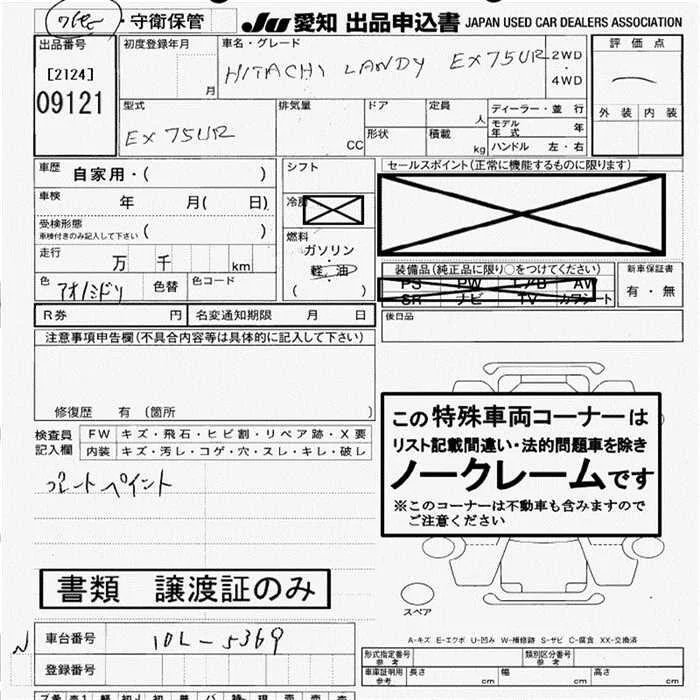 ・守衛保管
JU 愛知 出品申込書 JAPAN USED CAR DEALERS ASSOCIATION
出品番号
[2124]
09121
初度登録年月
月
車名・グレード
HITACHI LANDY EX75UR
2WD
・
4WD
評 価 点
外 装 内 装
型式
EX75UR
排気量
CC
ドア
形状
定員
人
積載
kg
ディーラー・並 行
モデル年式 年
ハンドル 左・右
車歴 自家用・( )
車検 年 月( 日)
受検形態
車検付きのみ記入して下さい ( )
走行 万 千 km
色 アオ/ミドリ 色替 色コード
シフト
冷房
燃料
ガソリン
・
軽 油
( )
セールスポイント(正常に機能するものに限ります)
装備品(純正品に限り○をつけてください)
PS PW エアB AW
SR ナビ TV カワシート
新車保証書
有・無
後日品
R券 円 名変通知期限 月 日
注意事項申告欄(不具合内容等は具体的に記入して下さい)
修復歴 有 (箇所 )
検査員記入欄
FW キズ・飛石・ヒビ割・リペア跡・X要
内装 キズ・汚レ・コゲ・穴・スレ・キレ・破レ
プレートペイント
この特殊車両コーナーは
リスト記載間違い・法的問題車を除き
ノークレームです
※このコーナーは不動車も含みますので
ご注意ください
書類 譲渡証のみ
スペア
A-キズ E-エクボ U-凹み W-補修跡 S-サビ C-腐食 XX-交換済
車台番号 10L-5369
登録番号
形式指定番号
参 考
類別区分番号
参 考
車庫証明用
参 考
長さ cm 幅 cm 高さ cm